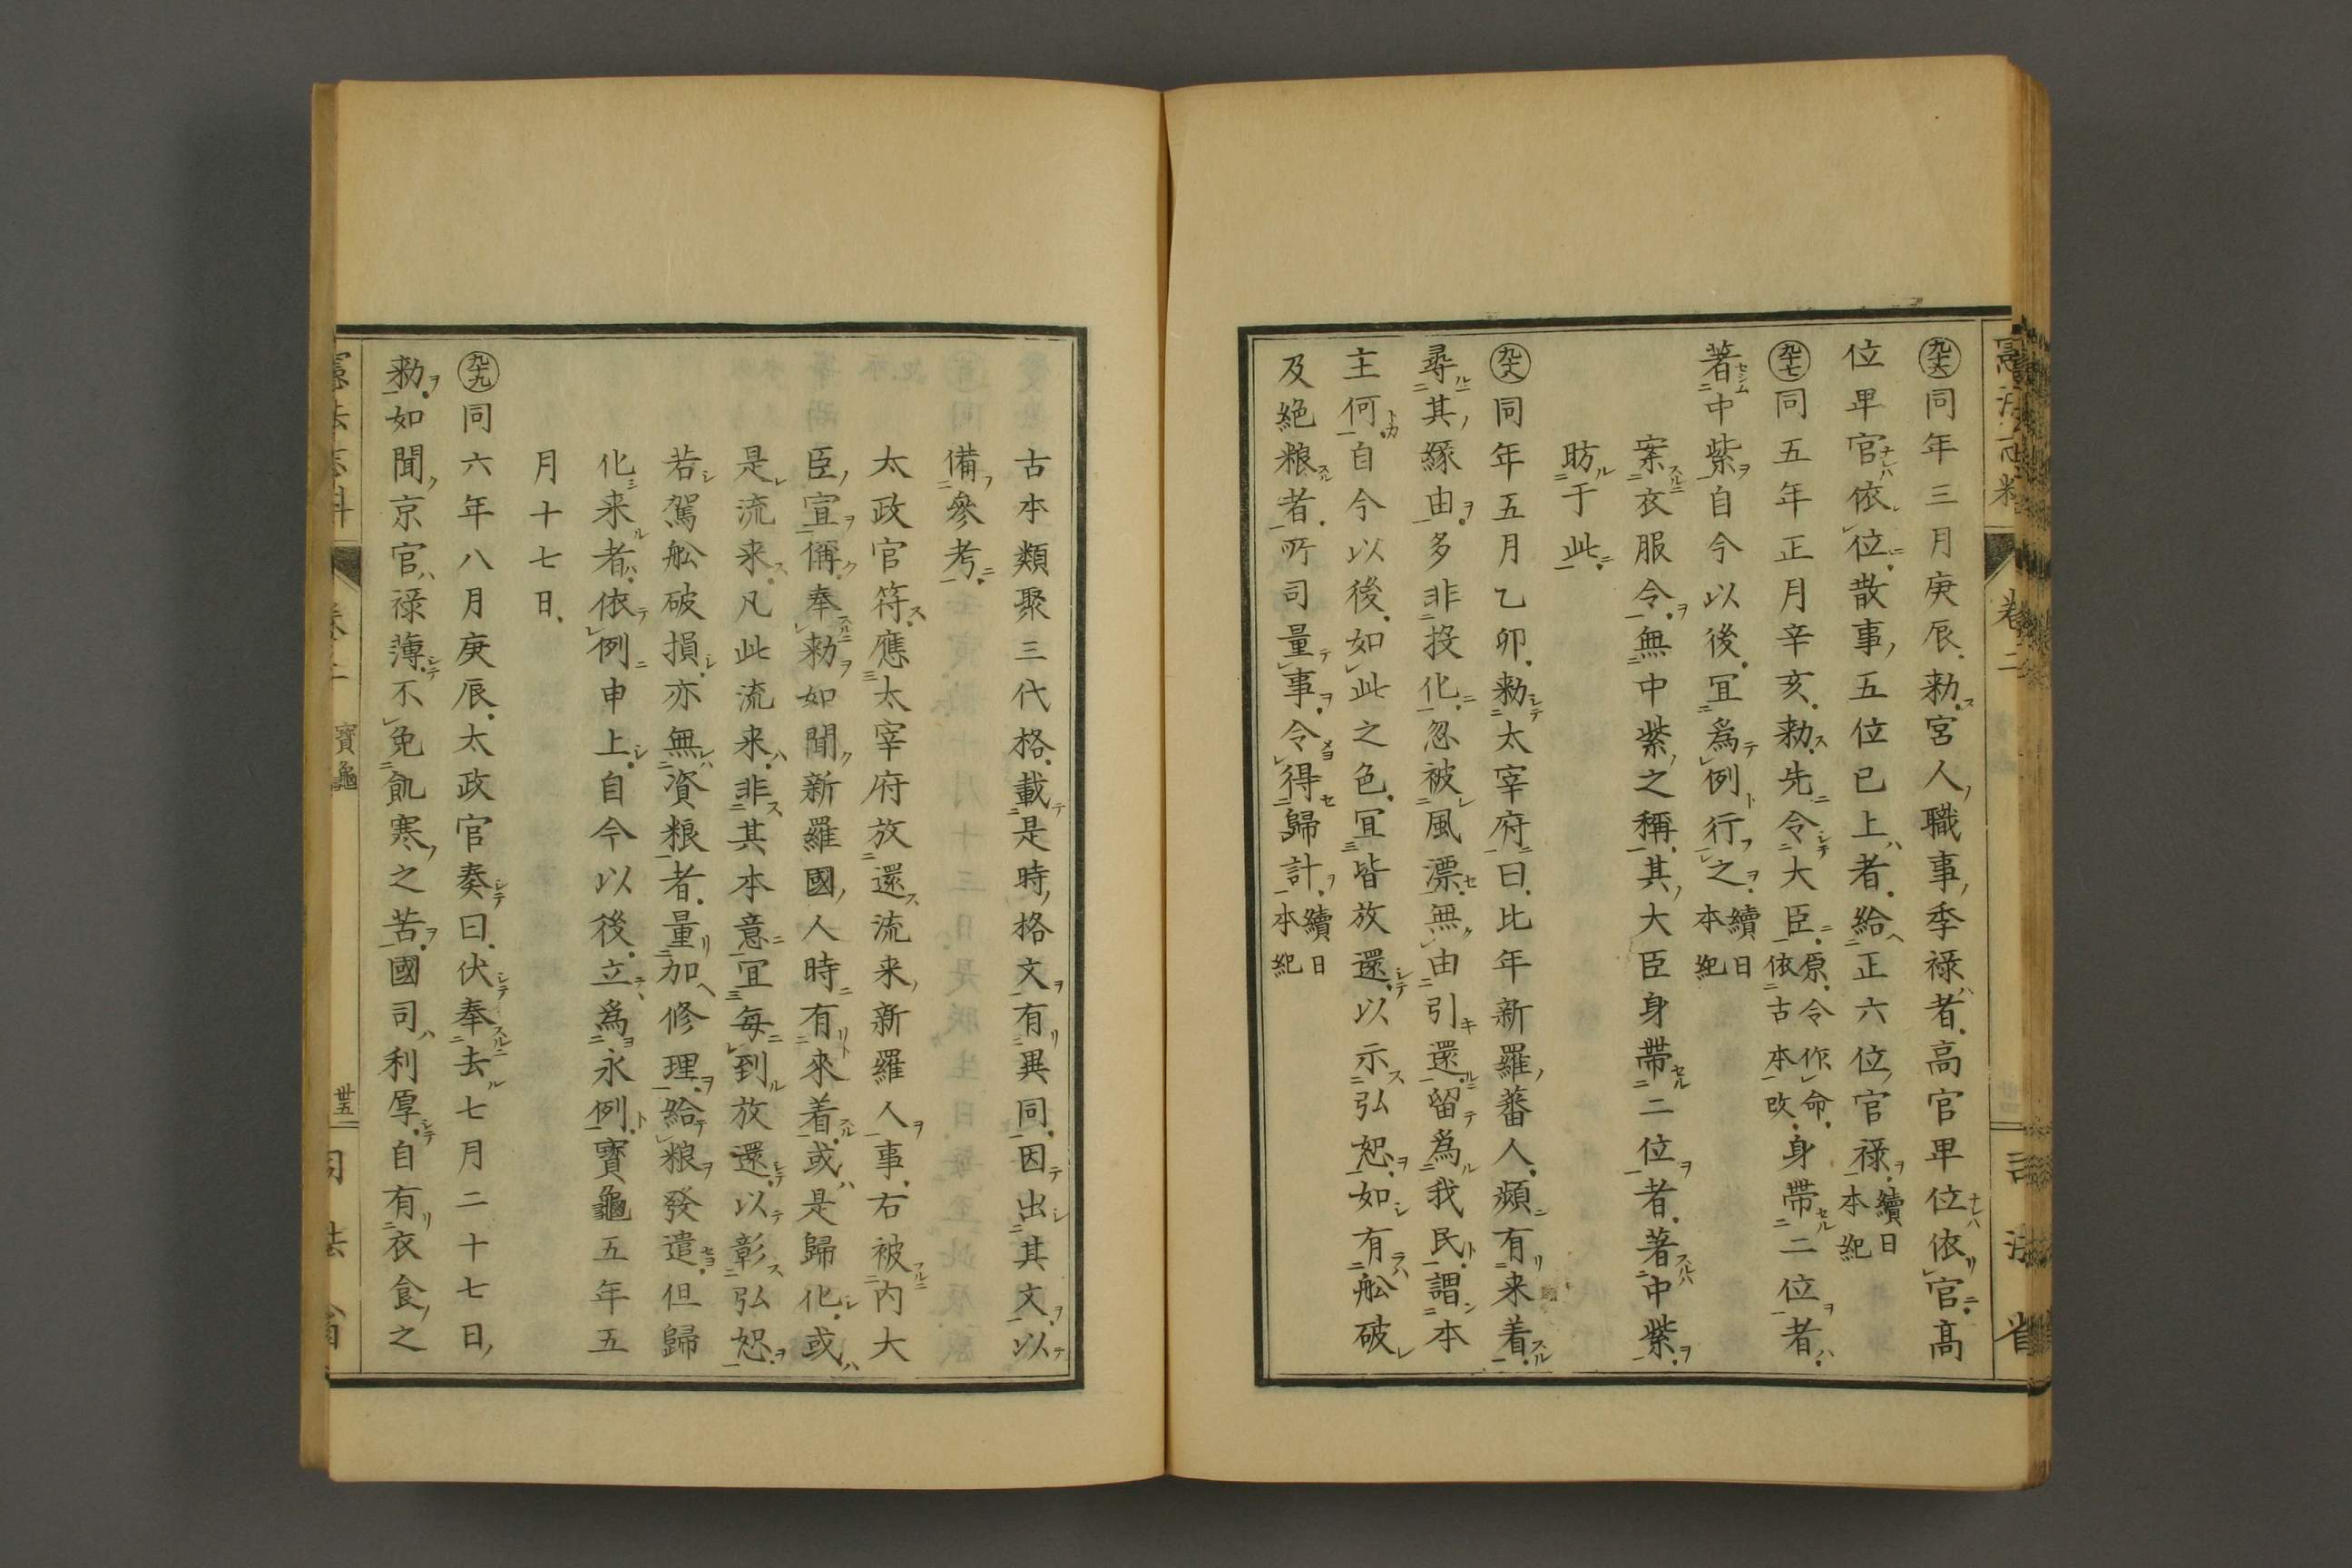 九十六同年三月庚辰勅宮人職事季禄者高官卑位依官高
位卑官依位散事五位已上者給正六位官禄續日本紀
九十七同五年正月辛亥勅先令大臣原令作命依古本改身帶二位者
著中紫自今以後宜爲例行之續日本紀
案衣服令無中紫之稱其大臣身帶二位者著中紫
昉于此
九十八同年五月乙卯勅太宰府曰比年新羅蕃人頻有来着
尋其縁由多非投化忽被風漂無由引還留爲我民謂本
主何自今以後如此之色宜皆放還以示弘恕如有舩破
及絶粮者所司量事令得歸計續日本紀
古本類聚三代格載是時格文有異同因出其文以
備參考
太政官符應太宰府放還流来新羅人事右被内大
臣宣偁奉勅如聞新羅國人時有來着或是歸化或
是流来凡此流来非其本意宜每到放還以彰弘恕
若駕舩破損亦無資粮者量加修理給粮發遣但歸
化来者依例申上自今以後立爲永例寳龜五年五
月十七日
九十九同六年八月庚辰太政官奏曰伏奉去七月二十七日
勅如聞京官禄薄不免飢寒之苦國司利厚自有衣食之
寳龜
卅五